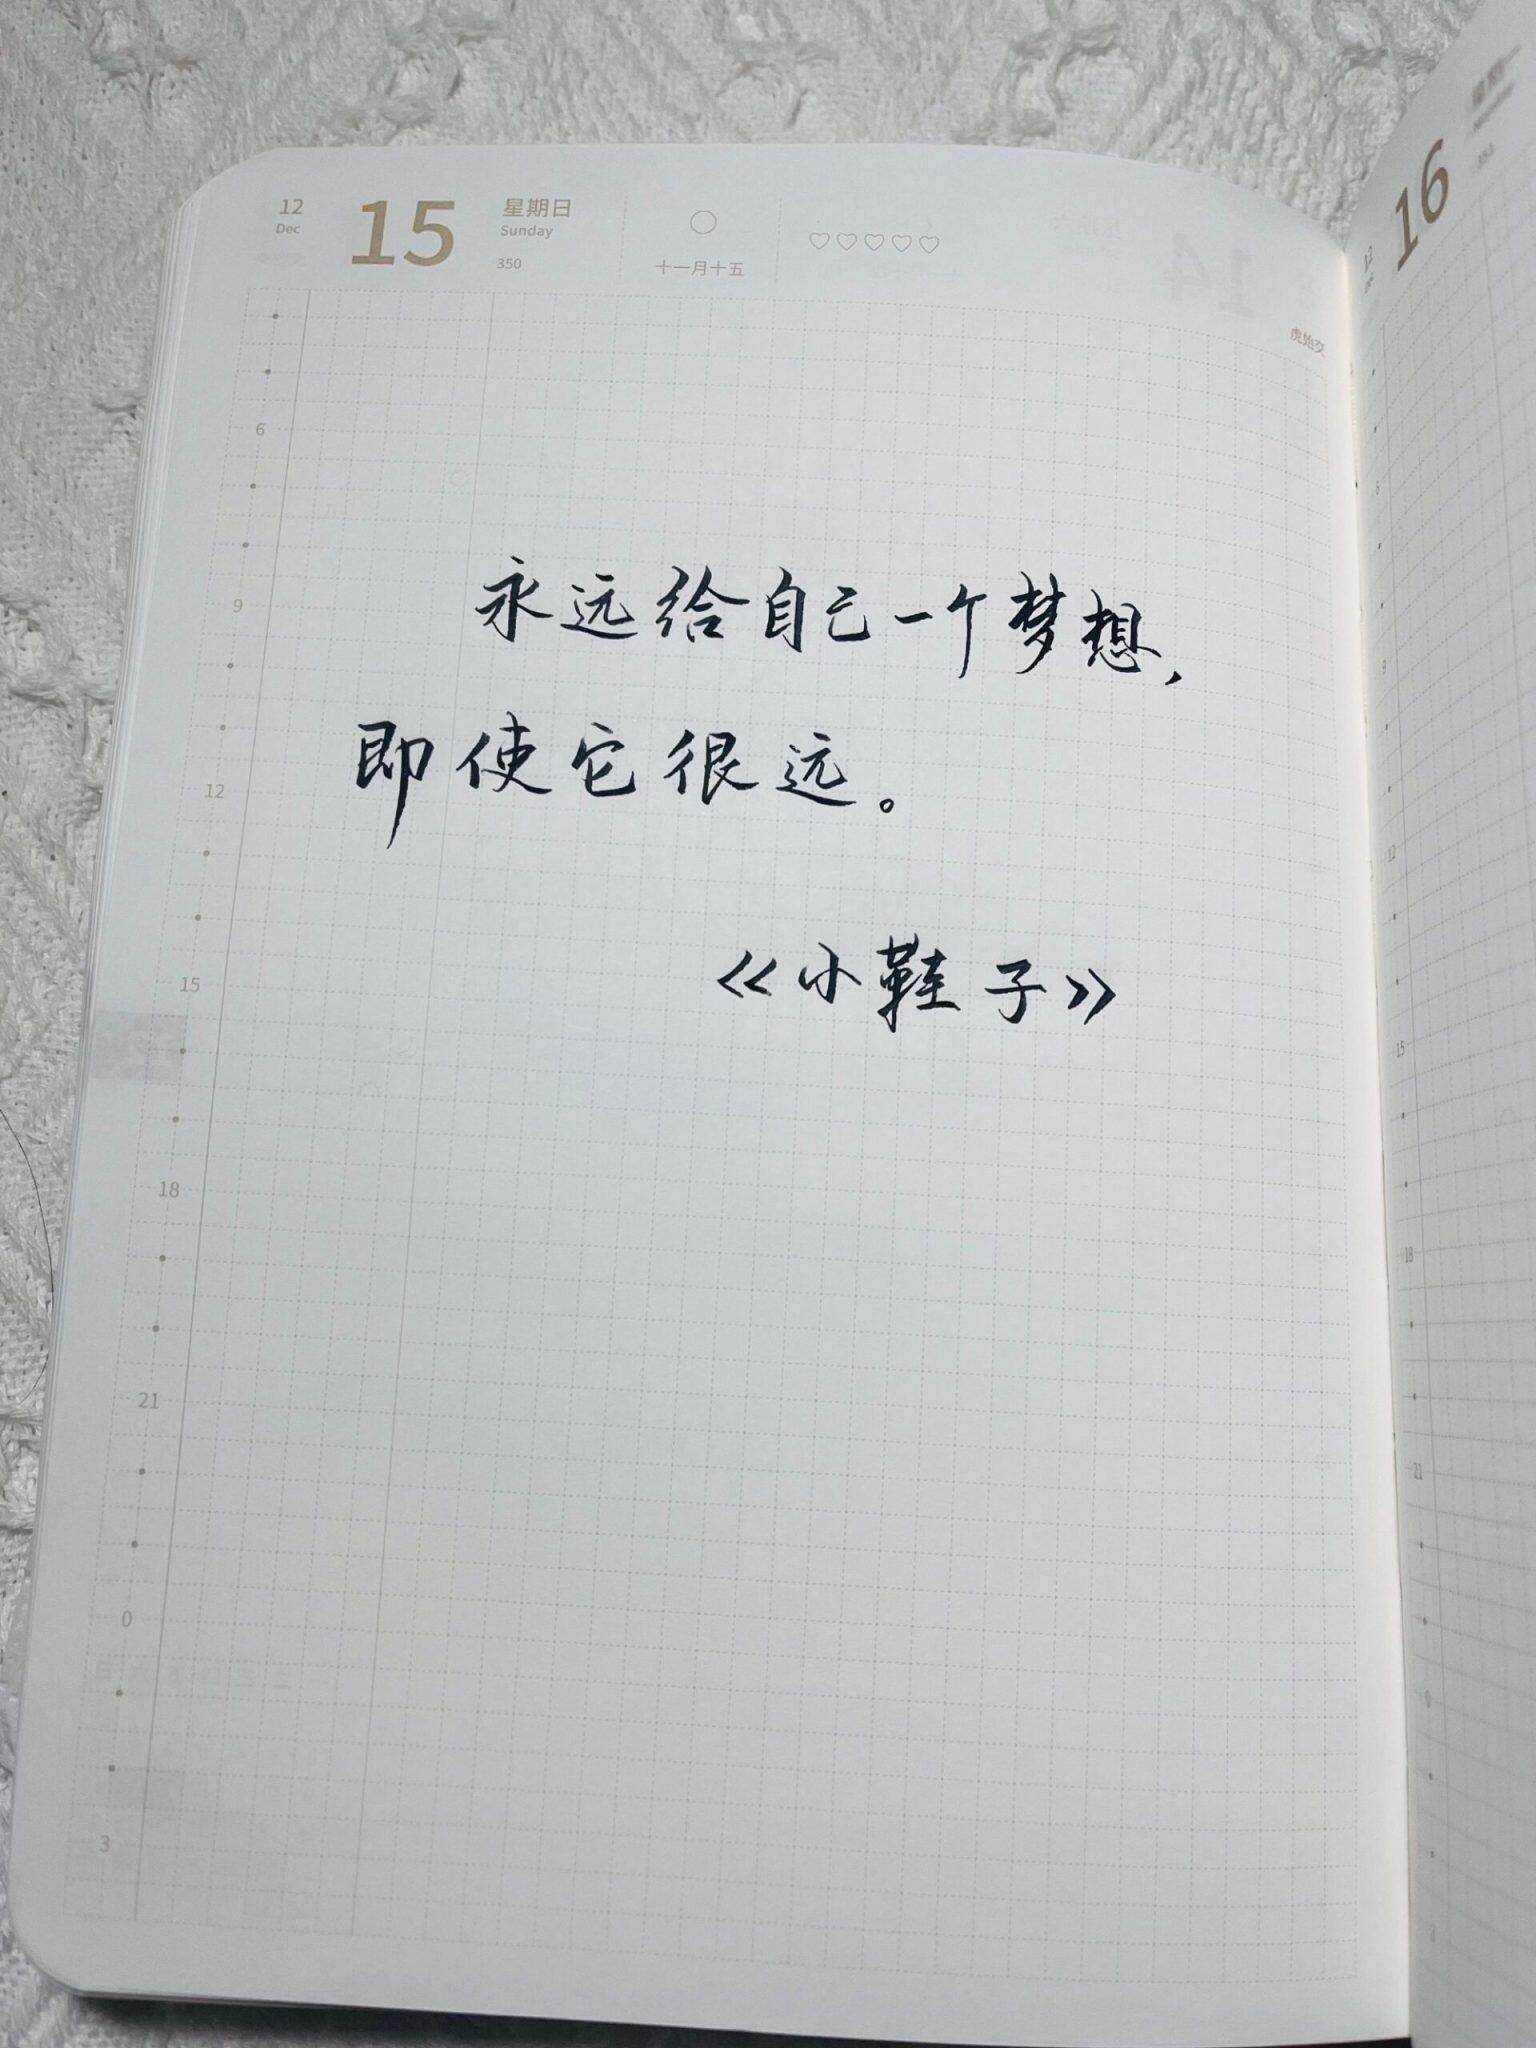 12
Dec
15
星期日
Sunday
350
十一月十五
虎始交
永远给自己一个梦想，
即使它很远。
《小鞋子》
6
9
12
15
18
21
0
3
16
12
6
9
12
15
18
21
0